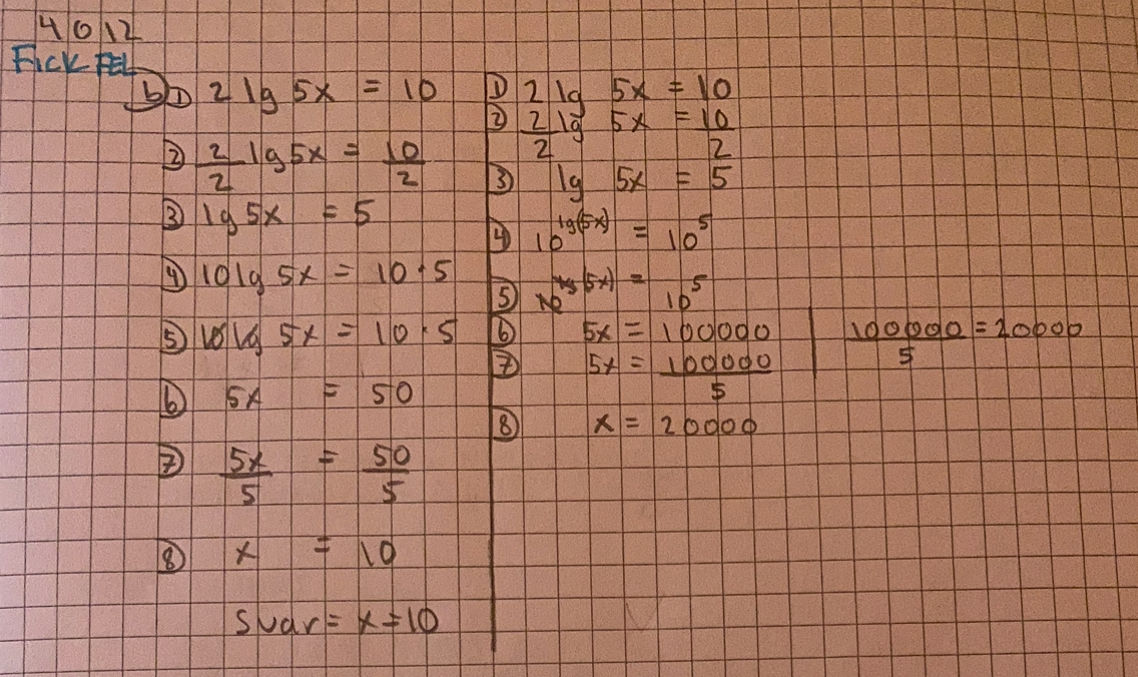 4012
Fick FEL
b) ① 2 lg 5x = 10
② 2/2 lg 5x = 10/2
③ lg 5x = 5
④ 10 lg 5x = 10 · 5
⑤ 10 lg 5x = 10 · 5
⑥ 5x = 50
⑦ 5x/5 = 50/5
⑧ x = 10
Svar = x = 10
① 2 lg 5x = 10
② 2/2 lg 5x = 10/2
③ lg 5x = 5
④ 10^lg(5x) = 10^5
⑤ 10^lg(5x) = 10^5
⑥ 5x = 100000
⑦ 5x = 100000/5
⑧ x = 20000
100000/5 = 20000